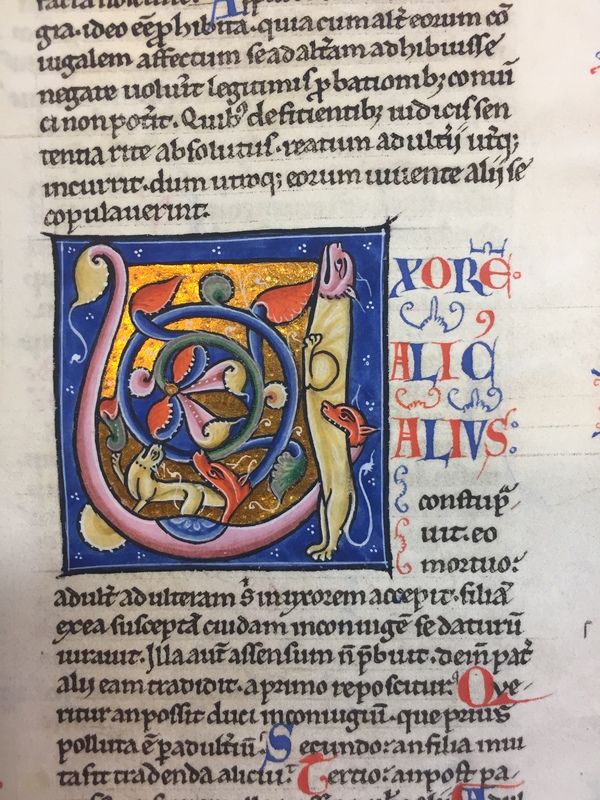 gra. ideo eē ꝓhibita. quia cum alt̄ eorum cō
iugalem affectum se ad alt̄am adhibuisse
negare uoluerit legitimis ꝓbationibꝫ conui
ci non pot̄it. Quibꝰ deficientibꝫ iudicis sen
tentia rite absolutus. reatum adult̄ii ut̄qꝫ
incurrit. dum utroqꝫ eorum uiuente alii se
copulauerint.
VXORĒ
ALIC
ALIVS:
constup̄
uit. eo
mortuo:
adult̄ adulteram s̄ in uxorem accepit. filiā
ex ea susceptā cuidam in coniugē se daturū
iurauit. Illa aut̄ assensum n̄ p̄buit. dein̄ pat̄
alii eam tradidit. a primo reposcitur. Que
ritur an possit duci in coniugiū. que prius
polluta ē ꝑ adult̄iū. Secundo: an filia inui
ta sit tradenda alicui. Tertio: an post pa